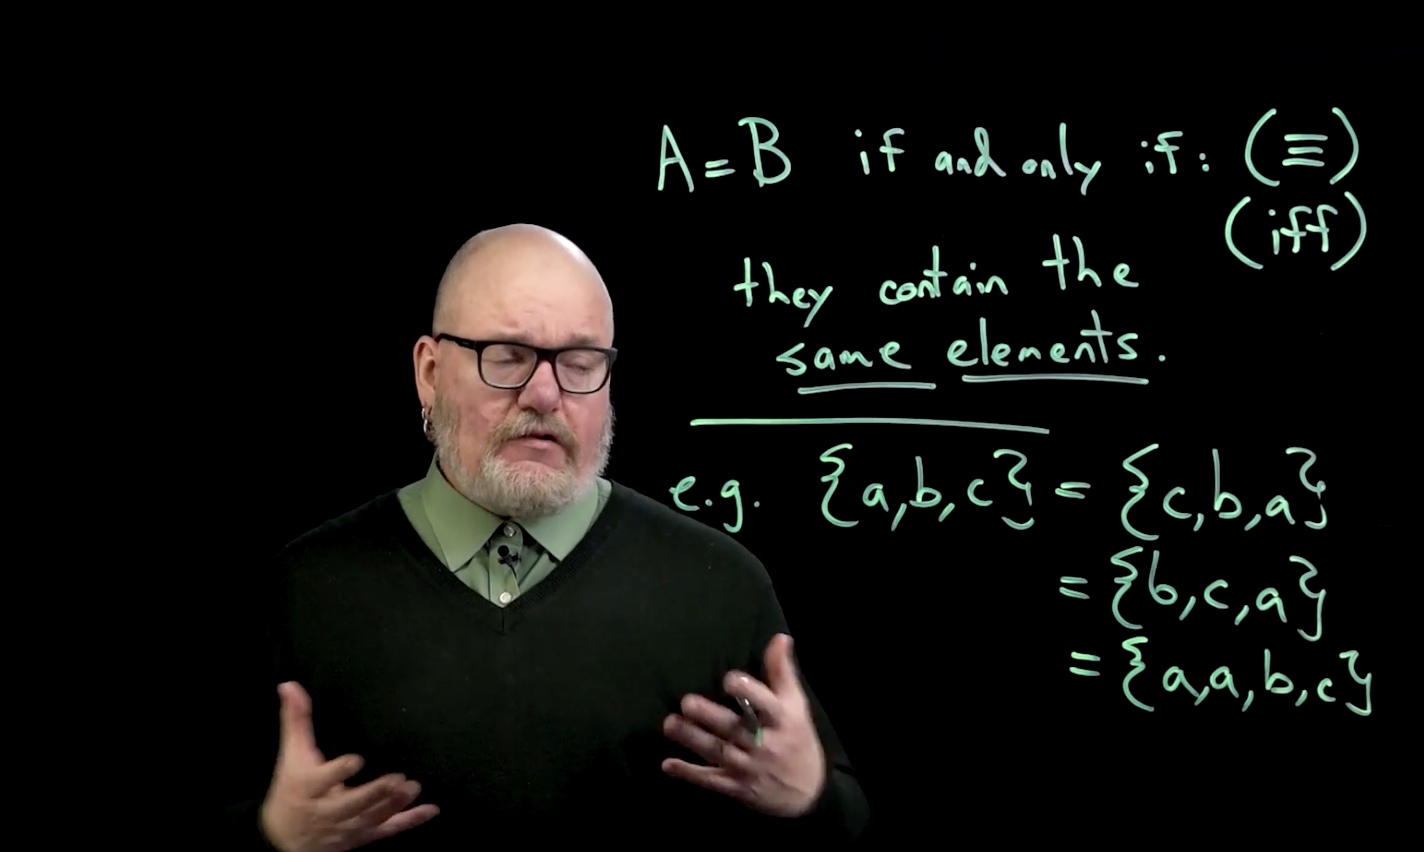 A = B if and only if: (≡)
(iff)
they contain the
same elements.
e.g. {a,b,c} = {c,b,a}
= {b,c,a}
= {a,a,b,c}